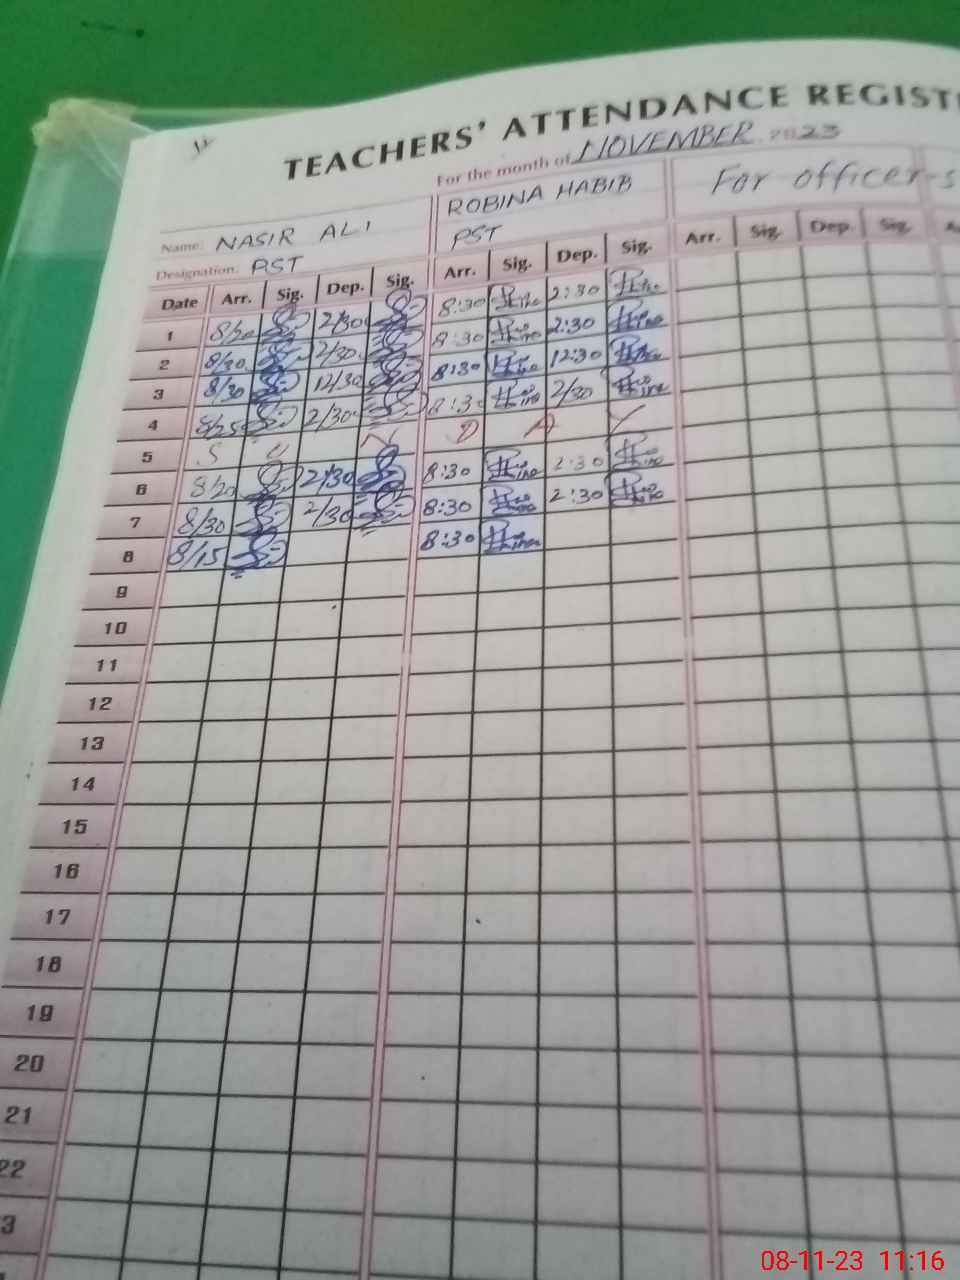 TEACHERS' ATTENDANCE REGIST
For the month of NOVEMBER 2023
Name: NASIR ALI ROBINA HABIB For officer-s
Designation. PST PST
Date Arr. Sig. Dep. Sig. Arr. Sig. Dep. Sig. Arr. Sig. Dep. Sig.
1 8/20 2/30 8:30 2:30
2 8/30 2/30 8:30 2:30
3 8/30 12/30 8:30 12:30
4 8/25 2/30 8:30 2/30
5 S U N D A Y
6 8/20 2/30 8:30 2:30
7 8/30 2/30 8:30 2:30
8 8/15 8:30
9
10
11
12
13
14
15
16
17
18
19
20
21
22
3
08-11-23 11:16